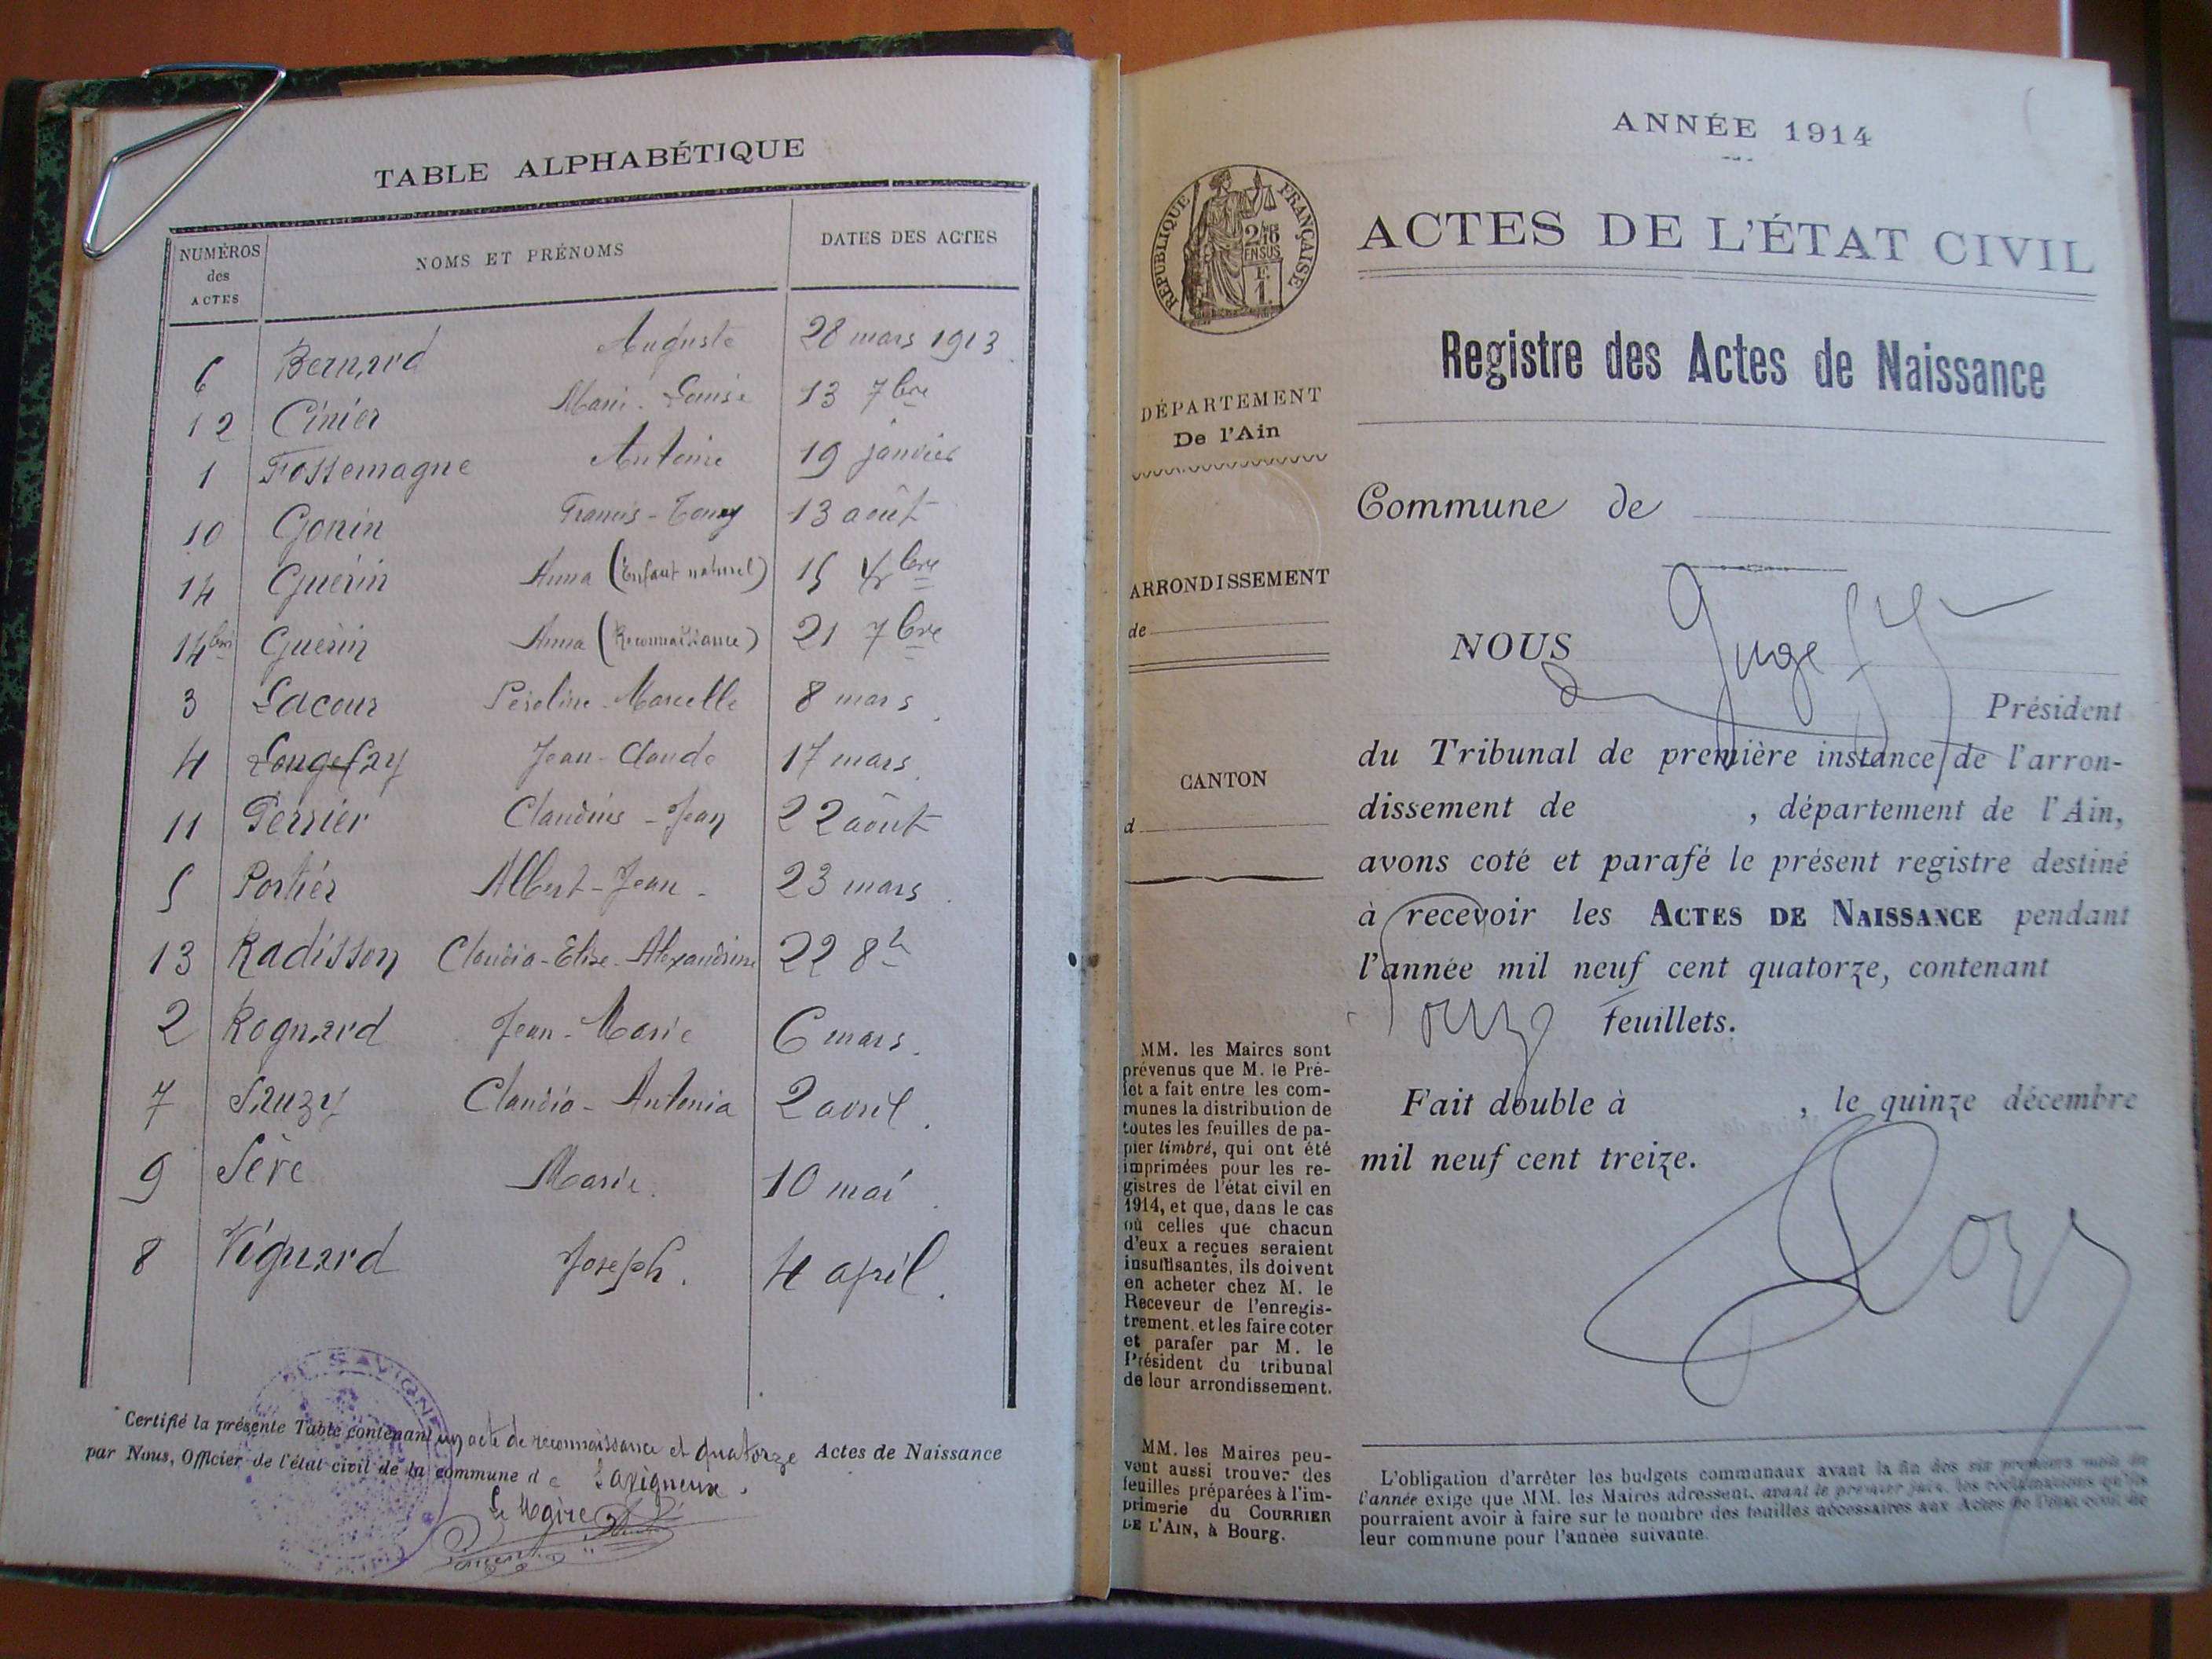 TABLE ALPHABÉTIQUE
NUMÉROS des ACTES NOMS ET PRÉNOMS DATES DES ACTES
6 Bernard Auguste 28 mars 1913
12 Cinier Marie-Louise 13 7bre
1 Fossemagne Antoine 19 janvier
10 Gonin Francis-Tony 13 août
14 Guérin Anna (Enfant naturel) 15 bre
14bis Guérin Anna (Reconnaissance) 21 7bre
3 Lacour Marcelle 8 mars
4 Longefay Jean-Claude 17 mars
11 Perrier Claudius-Jean 22 août
5 Portier Albert-Jean 23 mars
13 Radisson Claudia-Elise-Alexandrine 22 8b
2 Rognard Jean-Marie 6 mars
7 Sruzy Claudia-Antonia 2 avril
9 Sève Marie 10 mai
8 Vignard Joseph 4 april
Certifié la présente Table contenant un acte de reconnaissance et quatorze Actes de Naissance
par Nous, Officier de l'état civil de la commune de Savigneux.
Le Maire
SAVIGNE
ANNÉE 1914
RÉPUBLIQUE FRANÇAISE
2/10 EN SUS
F. 1.
ACTES DE L'ÉTAT CIVIL
Registre des Actes de Naissance
DÉPARTEMENT
De l'Ain
Commune de
ARRONDISSEMENT
de
NOUS Juge
Président
du Tribunal de première instance de l'arron-
CANTON
d
dissement de , département de l'Ain,
avons coté et parafé le présent registre destiné
à recevoir les ACTES DE NAISSANCE pendant
l'année mil neuf cent quatorze, contenant
feuillets.
Fait double à , le quinze décembre
mil neuf cent treize.
MM. les Maires sont
prévenus que M. le Pré-
fet a fait entre les com-
munes la distribution de
toutes les feuilles de pa-
pier timbré, qui ont été
imprimées pour les re-
gistres de l'état civil en
1914, et que, dans le cas
où celles que chacun
d'eux a reçues seraient
insuffisantes, ils doivent
en acheter chez M. le
Receveur de l'enregis-
trement, et les faire coter
et parafer par M. le
Président du tribunal
de leur arrondissement.
MM. les Maires peu-
vent aussi trouver des
feuilles préparées à l'im-
primerie du COURRIER
DE L'AIN, à Bourg.
L'obligation d'arrêter les budgets communaux avant la fin des six premiers mois de
l'année exige que MM. les Maires adressent, avant le premier juin, les réclamations qu'ils
pourraient avoir à faire sur le nombre des feuilles nécessaires aux Actes de l'état civil de
leur commune pour l'année suivante.